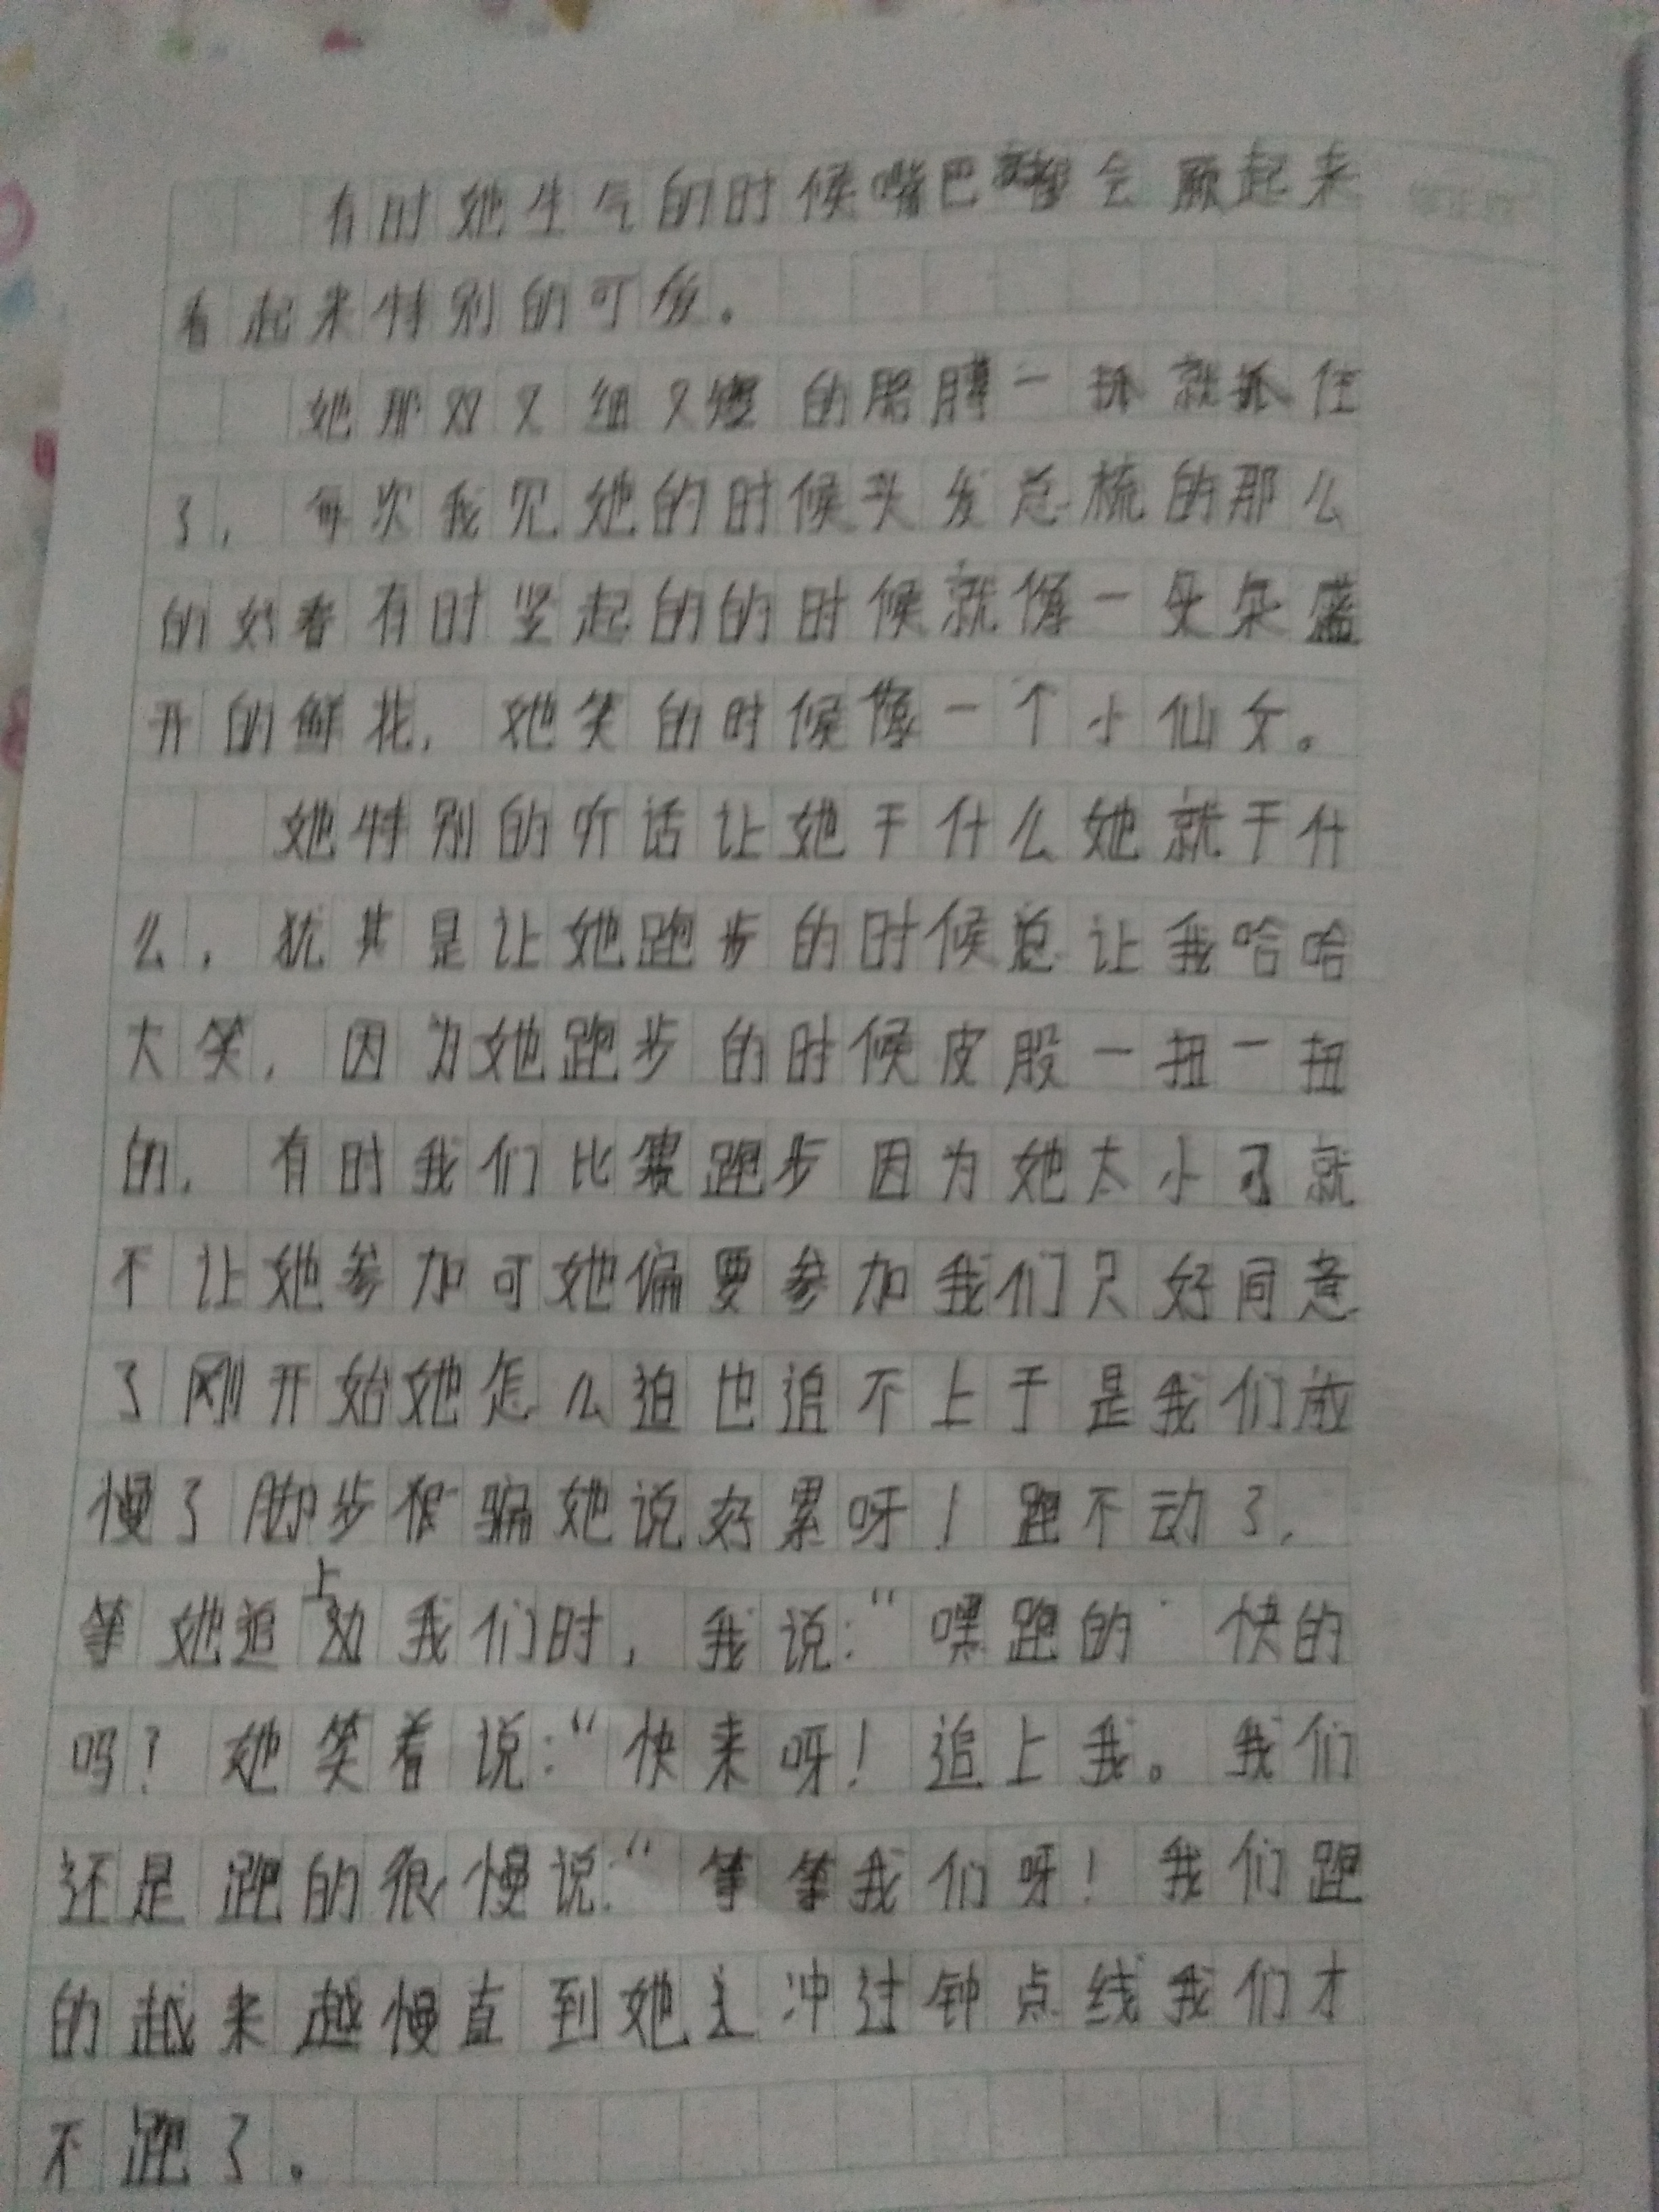 有时她生气的时候嘴巴都会厥起来
看起来特别的可爱。
她那双又细又矮的胳膊一抓就抓住
了，每次我见她的时候头发总梳的那么
的好看有时竖起的的时候就像一朵盛
开的鲜花，她笑的时候像一个小仙女。
她特别的听话让她干什么她就干什
么，犹其是让她跑步的时候总让我哈哈
大笑，因为她跑步的时候皮股一扭一扭
的，有时我们比赛跑步因为她太小了就
不让她参加可她偏要参加我们只好同意
了刚开始她怎么追也追不上于是我们放
慢了脚步骗她说好累呀！跑不动了，
等她追上我们时，我说：“嘿跑的快的
吗？她笑着说：“快来呀！追上我。我们
还是跑的很慢说：“等等我们呀！我们跑
的越来越慢直到她冲过钟点线我们才
不跑了。